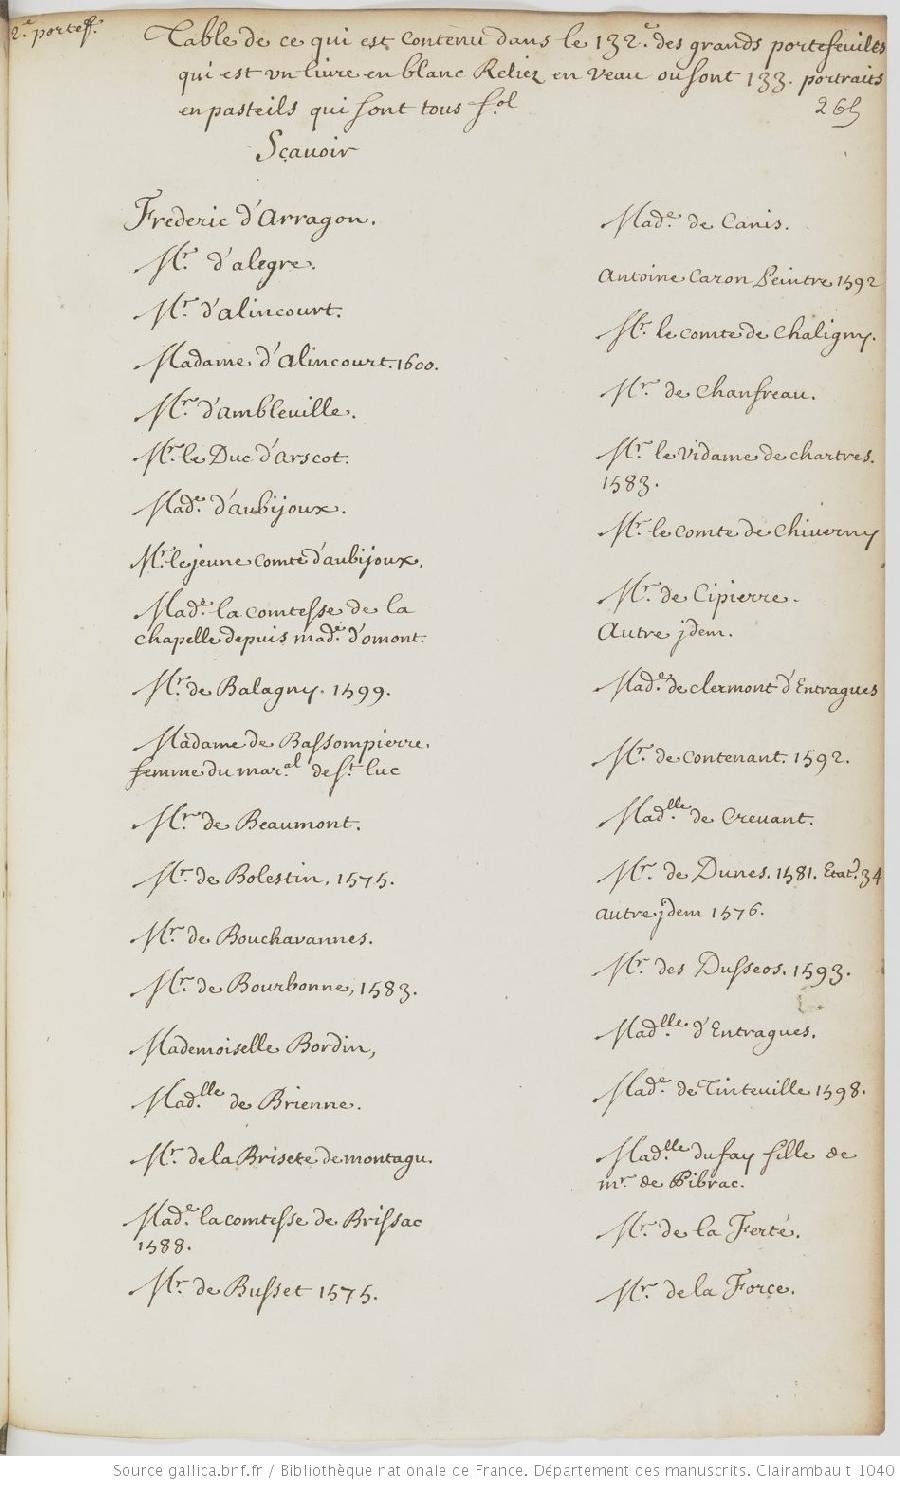 2.e portef.
Table de ce qui est contenu dans le 132.e des grands portefeuilles
qui est vn livre en blanc Reliez en veau ou sont 133. portraits
en pasteils qui sont tous fol
265
Sçauoir
Frederic d'Arragon.
Mr. d'alegre.
Mr. d'alincourt.
Madame d'Alincourt. 1600.
Mr. d'ambleuille.
Mr. le Duc d'arscot.
Made. d'aubijoux.
Mr. le jeune comte d'aubijoux.
Made. la comtesse de la
chapelle depuis made. d'omont.
Mr. de Balagny. 1599.
Madame de Bassompierre.
femme du maral de St. luc
Mr. de Beaumont.
Mr. de Bolestin, 1575.
Mr. de Bouchavannes.
Mr. de Bourbonne, 1583.
Mademoiselle Bordin,
Madlle. de Brienne.
Mr. de la Brisete de montagu.
Made. la comtesse de Brissac
1588.
Mr. de Busset 1575.
Made. de Canis.
Antoine Caron Peintre 1592
Mr. le comte de Chaligny.
Mr. de Chanfreau.
Mr. le vidame de chartres.
1583.
Mr. le comte de Chiuerny
Mr. de Cipierre.
Autre jdem.
Made. de clermont d'Entragues
Mr. de Contenant. 1592.
Madlle. de Creuant.
Mr. de Dunes. 1581. Etat. 34
autre jdem 1576.
Mr. des Dusseos. 1593.
Madlle. d'Entragues.
Made. de Tinteuille 1598.
Madlle. dufay fille de
mr. de Pibrac.
Mr. de la Ferté.
Mr. de la Force.
Source gallica.bnf.fr / Bibliothèque nationale de France. Département des manuscrits. Clairambault 1040